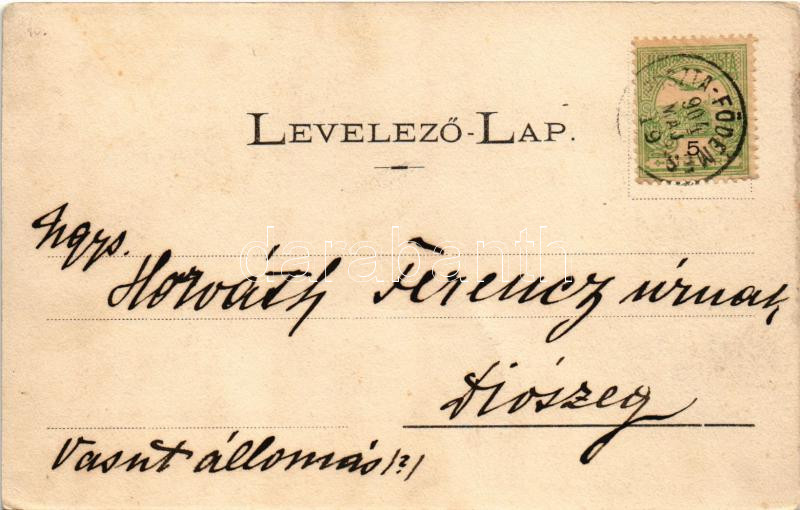 LEVELEZŐ-LAP.
PUSZTA-FÖDÉMES
904
MÁJ
19
5
Ngys.
Horváth Ferencz úrnak
Diószeg
Vasut állomás /?/
darabanth